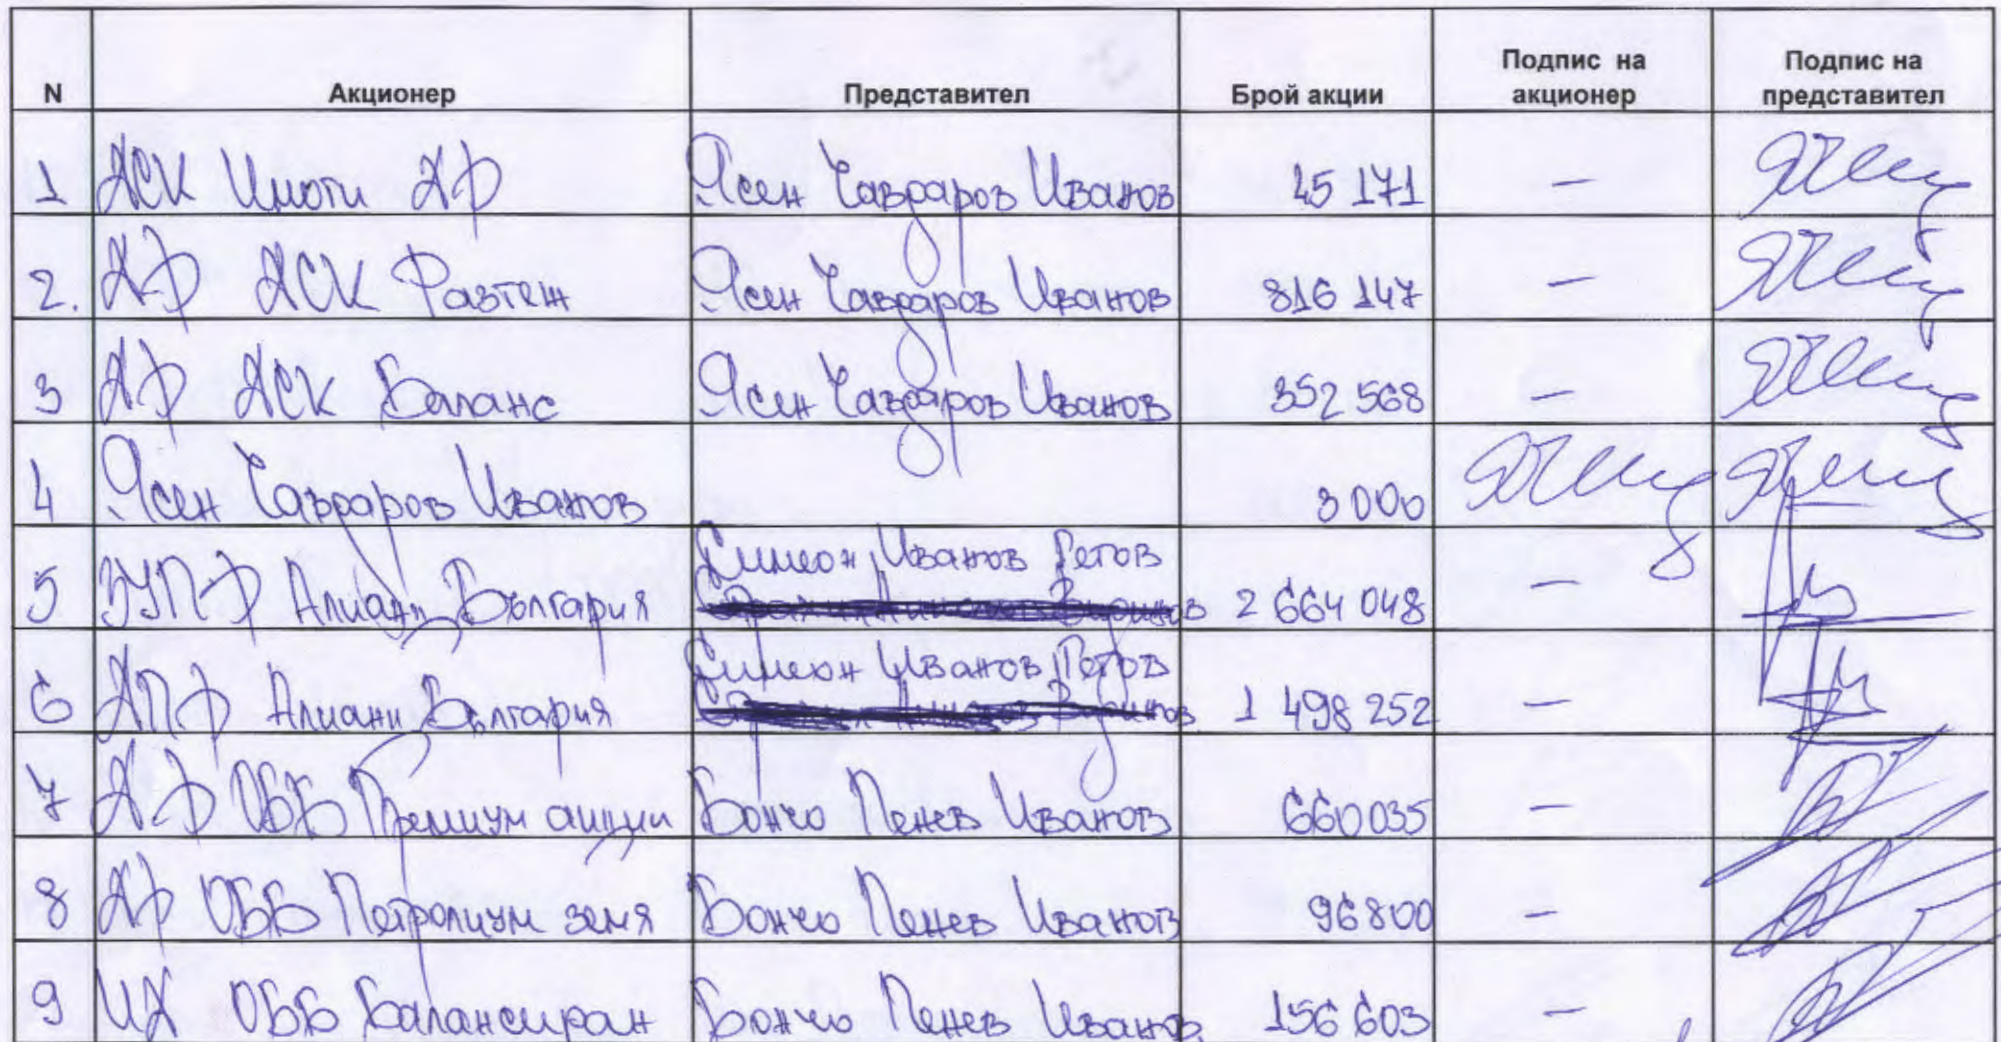 N Акционер Представител Брой акции Подпис на акционер Подпис на представител
1 ДСК Имоти ДФ Ясен Чавдаров Иванов 45 171 —
2. ДФ ДСК Растеж Ясен Чавдаров Иванов 816 147 —
3 ДФ ДСК Баланс Ясен Чавдаров Иванов 352 568 —
4 Ясен Чавдаров Иванов 3 000
5 ЗУПФ Алианц България Симеон Иванов Петов 2 664 048 —
6 ДПФ Алианц България Симеон Иванов Петов 1 498 252 —
7 ДФ ОББ Премиум акции Бончо Пенев Иванов 660 035 —
8 ДФ ОББ земя Бончо Пенев Иванов 96800 —
9 ИД ОББ Балансиран Бончо Пенев Иванов 156 603 —